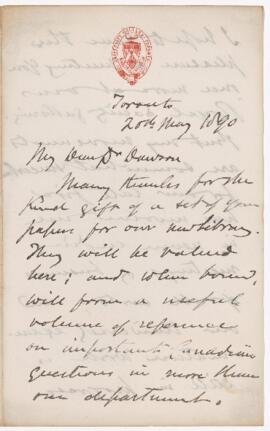 Toronto
20th May 1890
My Dear Dr Dawson
Many thanks for the
kind gift of a set of your
papers for our new Library.
They will be valued
here; and when bound,
will form a useful
volume of reference
on important Canadian
questions in more than
one department.